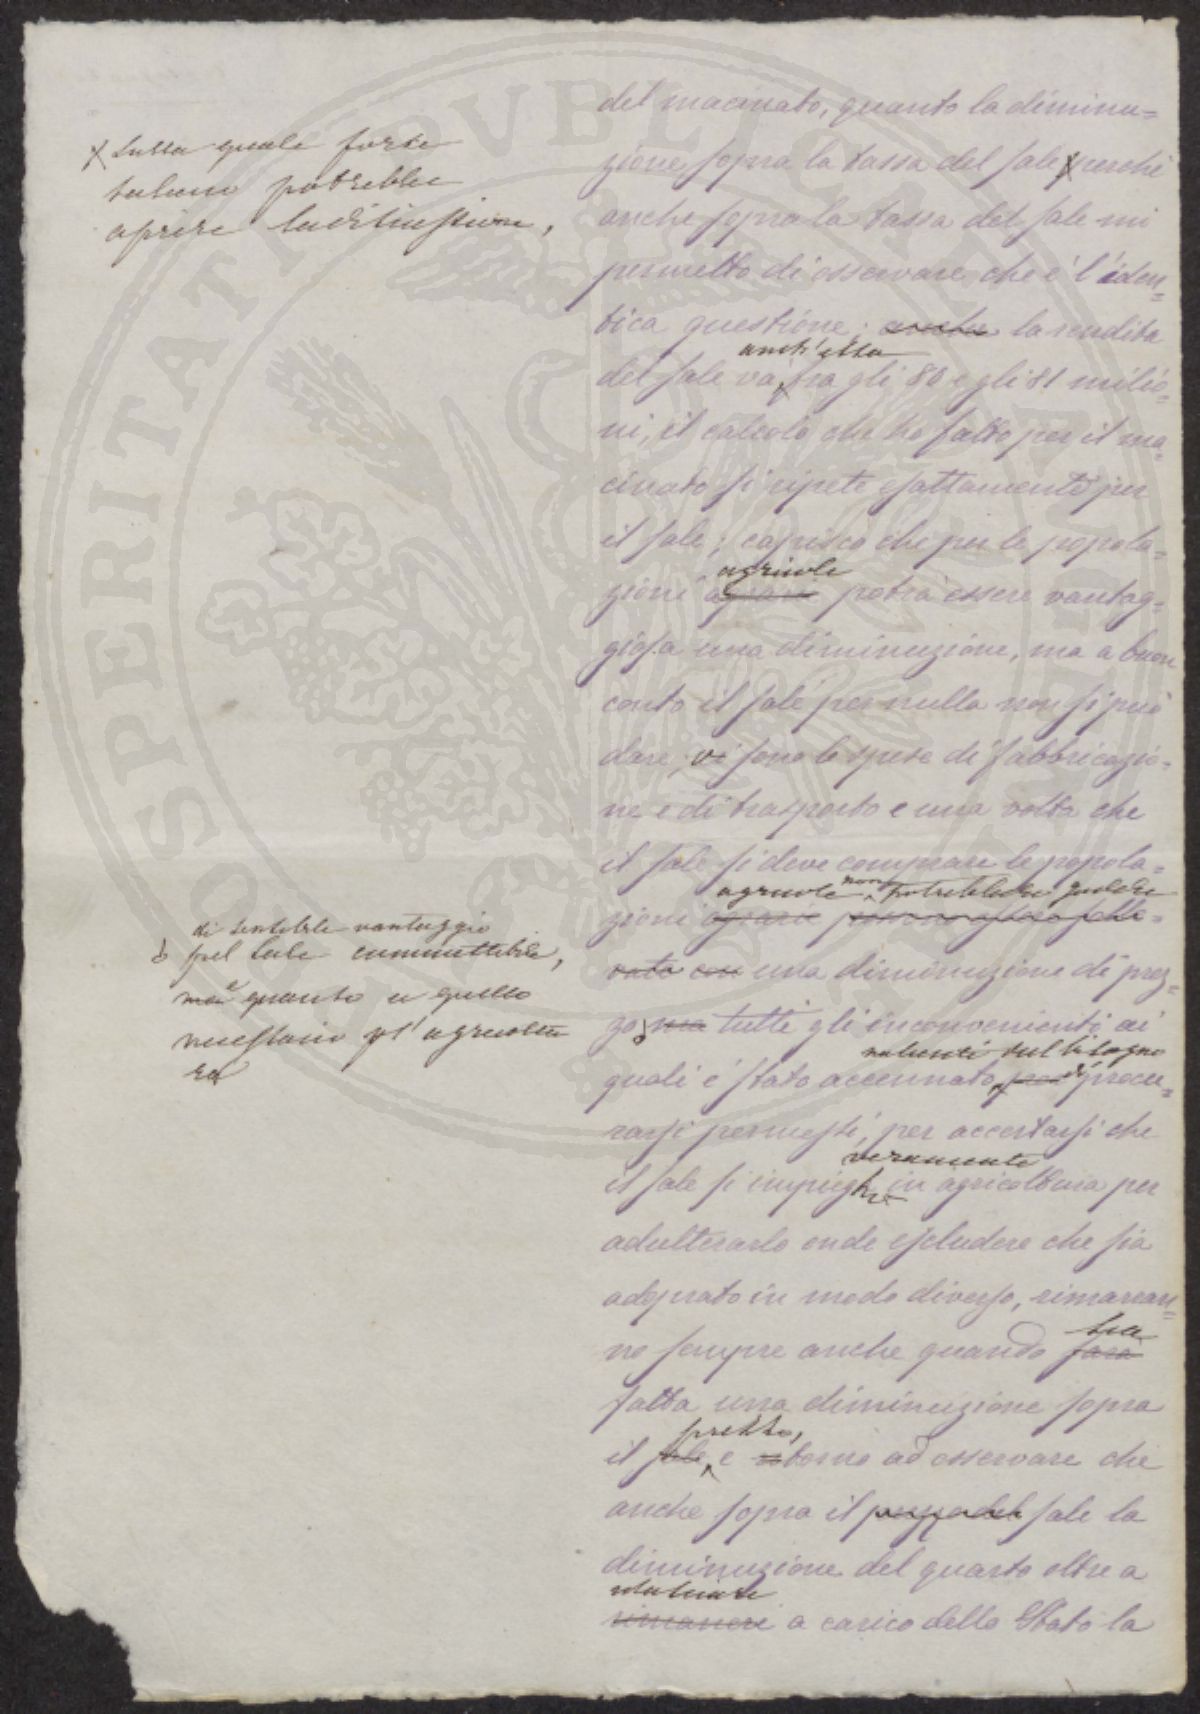 del macinato, quanto la diminu=
zione sopra la tassa del sale X perchè
X sulla quale forse
taluno potrebbe
aprire la discussione,
anche sopra la tassa del sale mi
permetto di osservare che è l'iden=
tica questione; anche la rendita
anch'essa
del sale va fra gli 80 e gli 81 milio=
ni, il calcolo che ho fatto per il ma=
cinato si ripete esattamente per
il sale; capisco che per le popola=
agricole
zioni agrarie potrà essere vantag=
giosa una diminuzione, ma a buon
conto il sale per nulla non si può
dare, vi sono le spese di fabbricazio=
ne e di trasporto e una volta che
il sale si deve comprare le popola=
agricole non potrebbero godere
zioni agrarie
di sensibile vantaggio
pel sale commestibile,
quanto a quello
necessario pl' agricoltu
ra
una diminuzione di prez=
zo ma tutti gli inconvenienti ai
nascenti sul bisogno
quali è stato accennato, di procu=
rarsi permessi, per accertarsi che
veramente
il sale si impieghi in agricoltura per
adulterarlo onde escludere che sia
adoprato in modo diverso, rimarran=
no sempre anche quando sarà
sia
fatta una diminuzione sopra
prezzo,
il sale, e torno ad osservare che
anche sopra il prezzo del sale la
diminuzione del quarto oltre a
rilasciare
rimanere a carico dello Stato la
ASPERITATI PUBLICAE